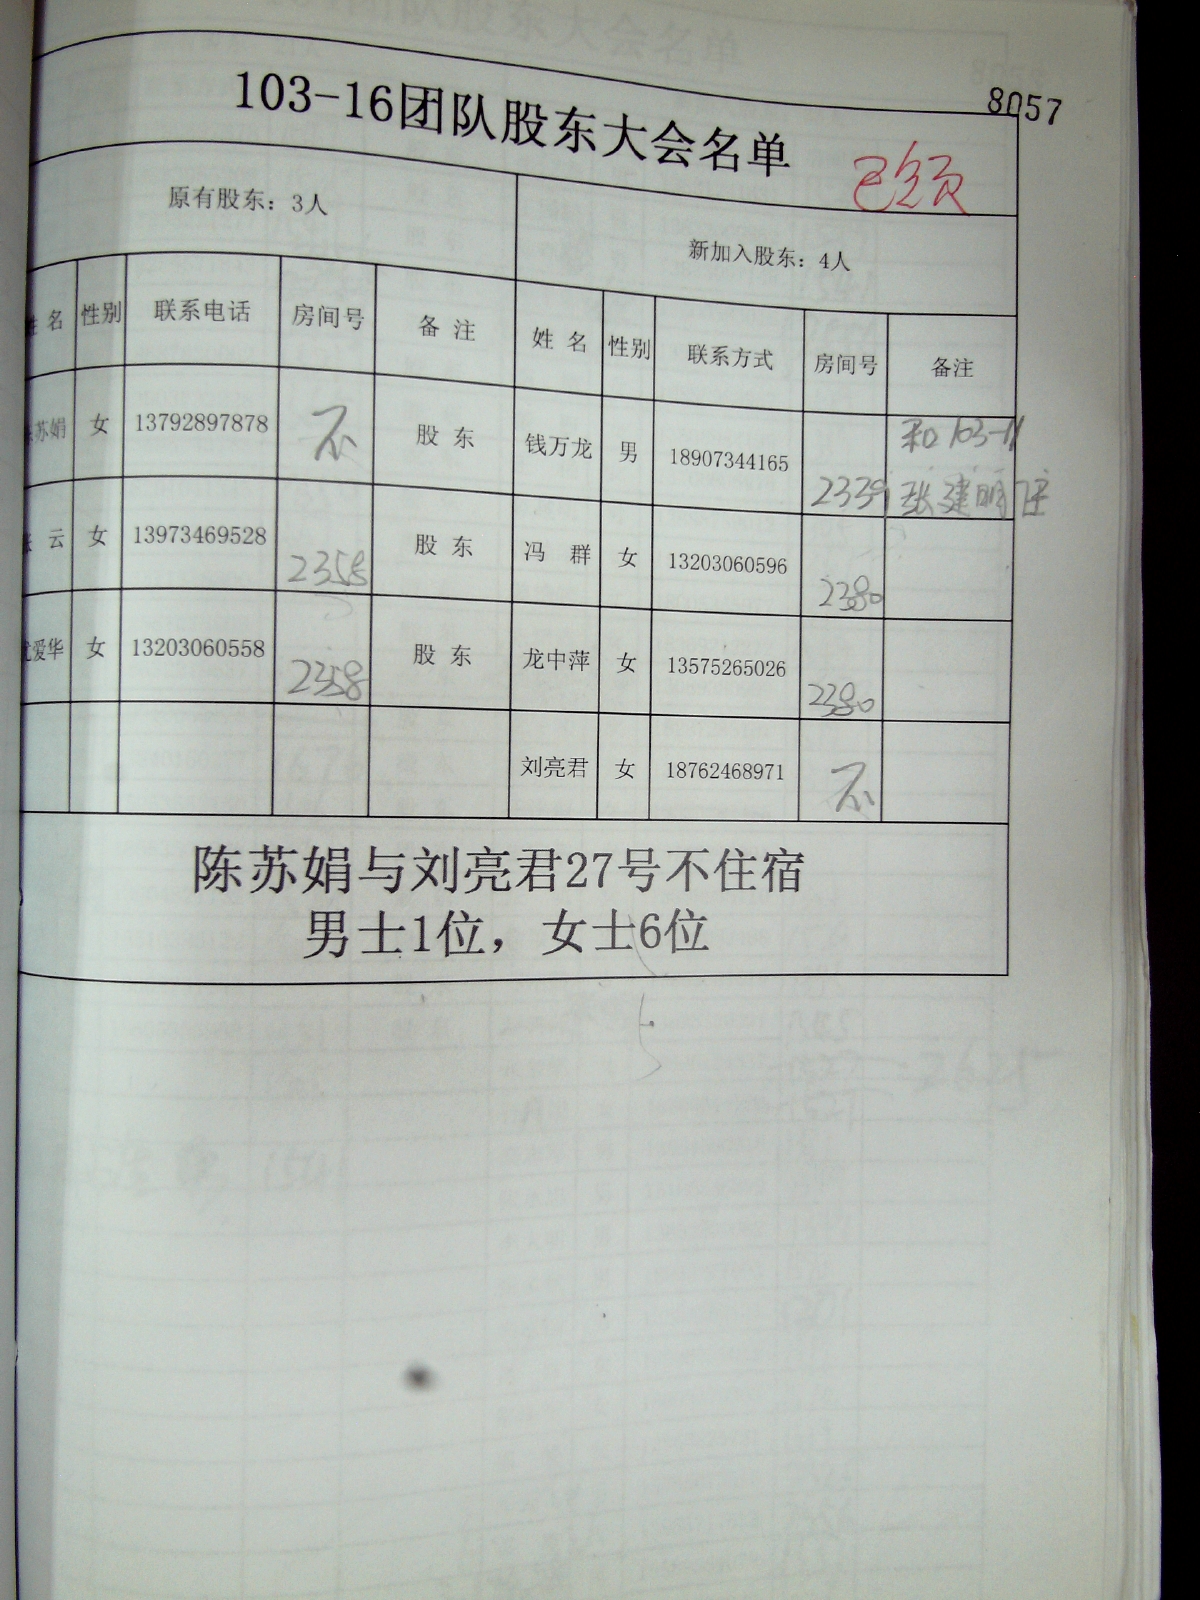 8057
103-16团队股东大会名单 已领
原有股东：3人 新加入股东：4人
姓 名 性别 联系电话 房间号 备 注 姓 名 性别 联系方式 房间号 备注
苏娟 女 13792897878 不 股 东 钱万龙 男 18907344165 2339 和103-11
张建明住
云 女 13973469528 2358 股 东 冯 群 女 13203060596 2380
爱华 女 13203060558 2358 股 东 龙中萍 女 13575265026 2380
刘亮君 女 18762468971 不
陈苏娟与刘亮君27号不住宿
男士1位，女士6位
5